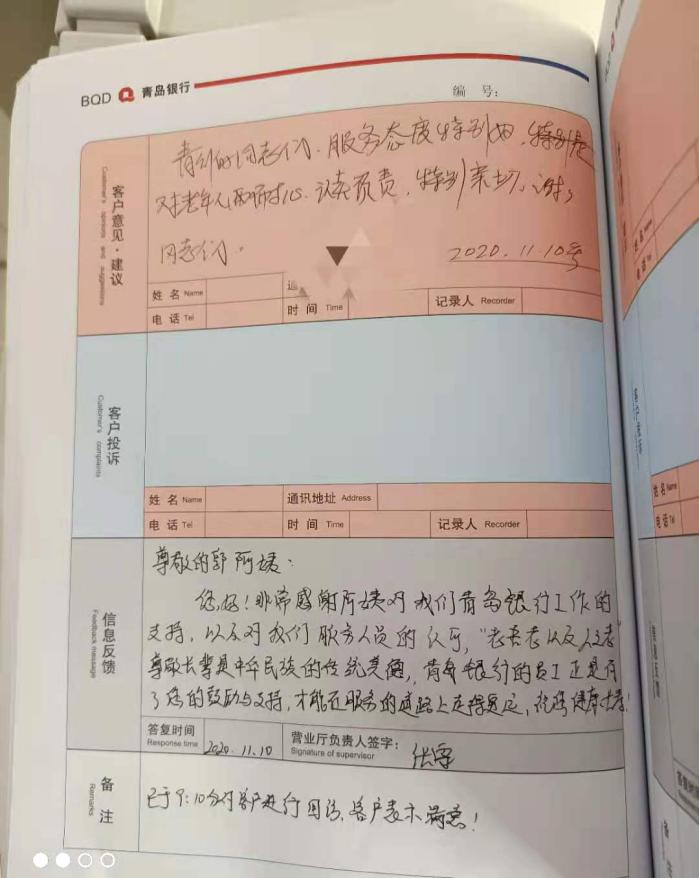 BQD 青岛银行
编 号:
客户意见·建议
Customer's opinions and suggestions
青行的同志们、服务态度特别好,特别是
对老年人耐心、认真负责,特别亲切、谢谢
同志们.
2020.11.10号
姓 名 Name
电 话 Tel
时 间 Time
记录人 Recorder
客户投诉
Customer's complaints
姓 名 Name
通讯地址 Address
电 话 Tel
时 间 Time
记录人 Recorder
信息反馈
Feedback message
尊敬的郭阿姨:
您好!非常感谢阿姨对我们青岛银行工作的
支持,以及对我们服务人员的认可,"老吾老以及人之老"
尊敬长辈是中华民族的传统美德,青岛银行的员工正是有
了您的鼓励与支持,才能在服务的道路上走得更远,祝您健康长寿!
答复时间
Response time
2020.11.10
营业厅负责人签字:
Signature of supervisor
备 注
Remarks
已于9:10分对客户进行回访,客户表示满意!
姓 名 Name
电 话 Tel